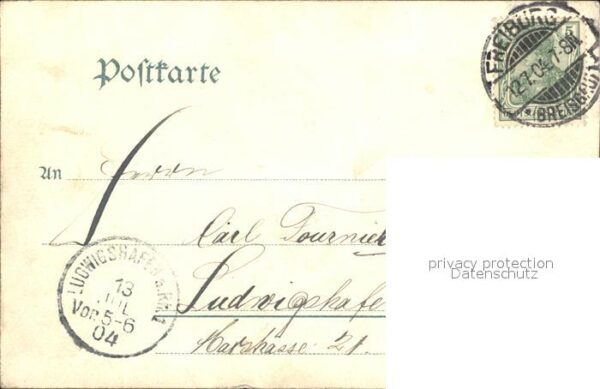 Postkarte
FREIBURG
12.7.04. 7-8N.
(BREISGAU)
5
An Herrn
Carl Tournier
privacy protection
Datenschutz
Ludwigshafe
Marstrasse 21.
LUDWIGSHAFEN a. RH. 1
13
JUL
Vor. 5-6
04